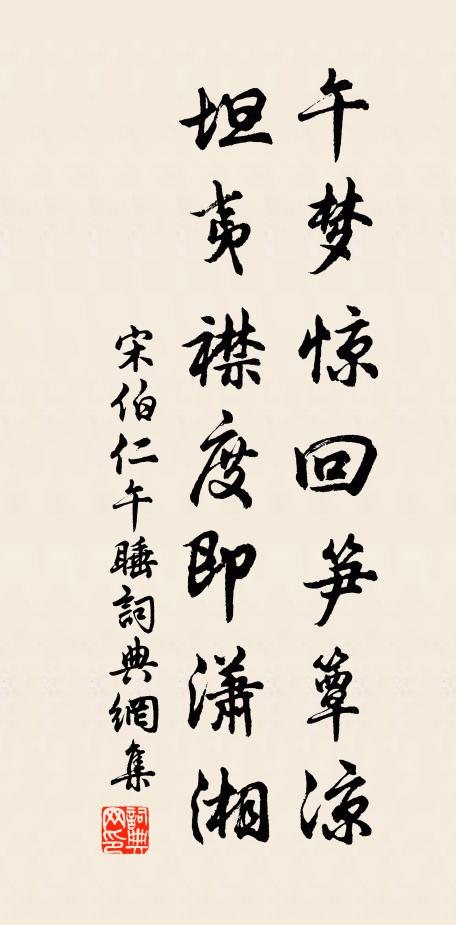 午梦惊回笋簟凉
坦夷襟度即潇湘
宋伯仁午睡詞典網集
詞典网印